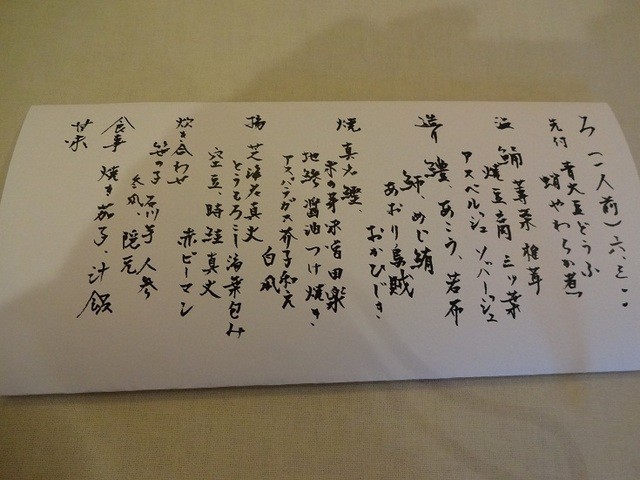 ろ（一人前）六、三〇〇
先付 青大豆どうふ
蛸やわらか煮
鯒 蓴菜 椎茸
焼豆腐 三ッ葉
アスペルジュ ソバージュ
造り 鱧、あこう、若布
鰤、めじ鮪
あおり烏賊
おかひじき、
焼 真魚鰹、
木の芽 田楽
地鶏醤油つけ焼き、
アスパラガス芥子和え
白瓜
揚 芝海老真丈
とうもろこし湯葉包み
空豆、時鮭真丈
炊き合わせ 赤ピーマン
笹の子 石川芋 人参
冬瓜、隠元
食事 焼き茄子、汁飯
甘味